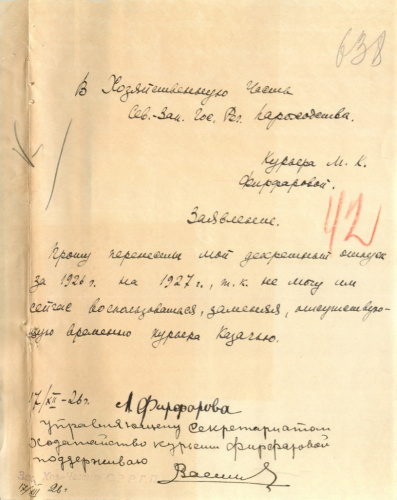 638
В Хозяйственную Часть
Сев.-Зап. Гос. Реч. пароходства.
Курьера М. К.
Фирфаровой.
Заявление.
42
Прошу перенести мой декретный отпуск
за 1926 г. на 1927 г., т.к. не могу им
сейчас воспользоваться, заменяя, отсутствую-
щую временно курьера Казачью.
17/XII-26 г.
М. Фирфарова
Управляющему Секретариатом
Ходатайство курьера Фирфаровой
поддерживаю
17/XII 26 г.